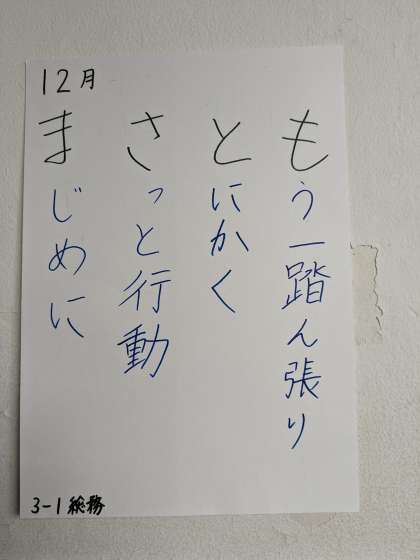 12月
もう一踏ん張り
とにかく
さっと行動
まじめに
3-1 総務